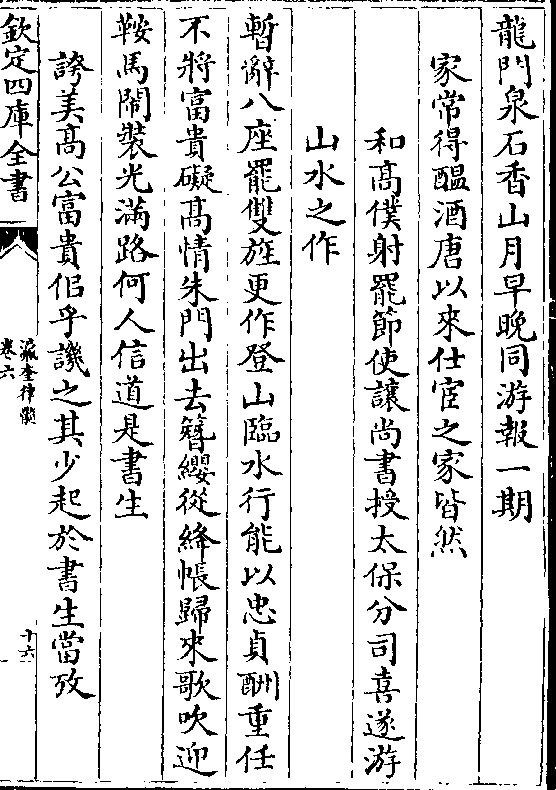 龍門泉石香山月早晚同游報一期
家常得醖酒唐以來仕宦之家皆然
和髙僕射罷節使讓尚書授太保分司喜遂游
山水之作
暫辭八座罷雙旌更作登山臨水行能以忠貞酬重任
不將富貴礙髙情朱門出去簪纓從絳帳歸來歌吹迎
鞍馬鬧裝光滿路何人信道是書生
誇美髙公富貴侣乎譏之其少起於書生當攷
欽定四庫全書
瀛奎律髓
卷六
十六